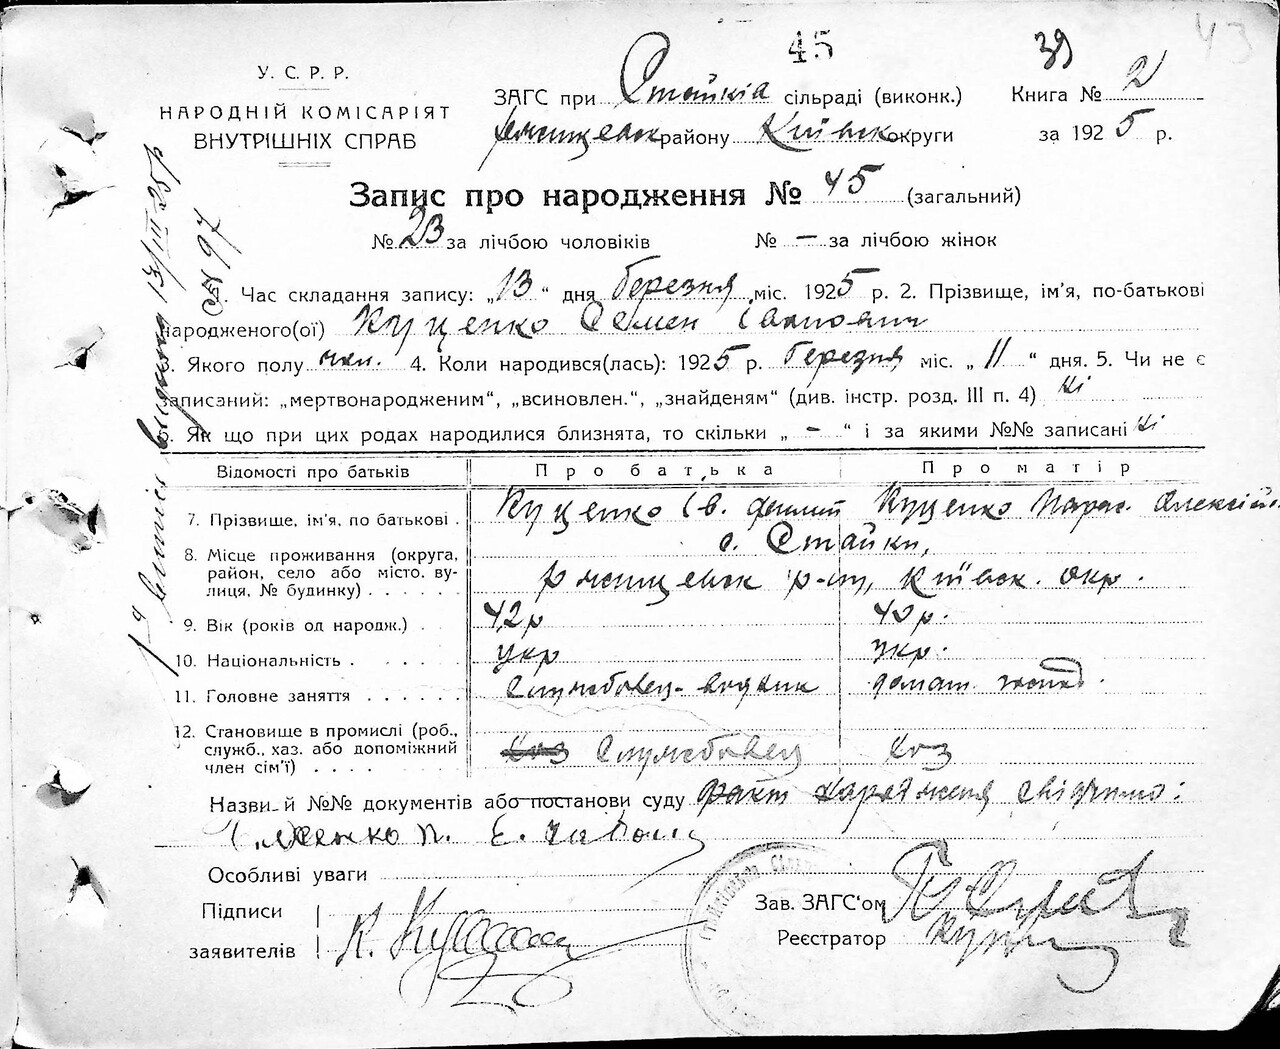 45 39 43
У. С. Р. Р.
НАРОДНІЙ КОМІСАРІЯТ
ВНУТРІШНІХ СПРАВ
ЗАГС при Стайкіа сільраді (виконк.) Книга № 2
району Київськ округи за 1925 р.
Запис про народження № 45 (загальний)
№ 23 за лічбою чоловіків № — за лічбою жінок
1. Час складання запису: „13“ дня березня міс. 1925 р. 2. Прізвище, ім'я, по-батькові
народженого(ої) Куценко Семен Іванович
3. Якого полу чол. 4. Коли народився(лась): 1925 р. березня міс. „11“ дня. 5. Чи не є
записаний: „мертвонародженим“, „всиновлен.“, „знайденям“ (див. інстр. розд. III п. 4) ні
6. Як що при цих родах народилися близнята, то скільки „—“ і за якими №№ записані ні
Відомості про батьків Про батька Про матір
7. Прізвище, ім'я, по батькові . Куценко Ів. Куценко Парас. Олексій.
8. Місце проживання (округа, с. Стайки,
район, село або місто. ву-
лиця, № будинку) . . . . . р-ну, Київск. окр.
9. Вік (років од народж.) . 42 р 40 р.
10. Національність . . . . . укр укр.
11. Головне заняття . . . . . Службовец-водник домаш. господ.
12. Становище в промислі (роб.,
служб., хаз. або допоміжний Службовец хоз
член сім'ї) . . . .
Назви й №№ документів або постанови суду факт народження свідчимо:
Особливі уваги
Підписи Зав. ЗАГС'ом
заявителів К. Реєстратор
виписа видана 13/III 25 р
№ 97